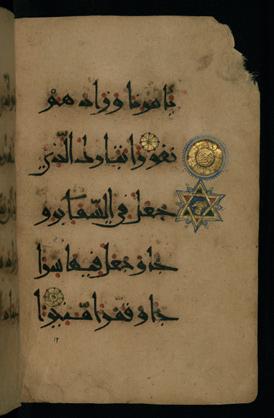 تأمرنا وزادهم
نفورا تبارك الذي
جعل في السماء برو
جا وجعل فيها سرا
جا وقمرا منيرا
١٢